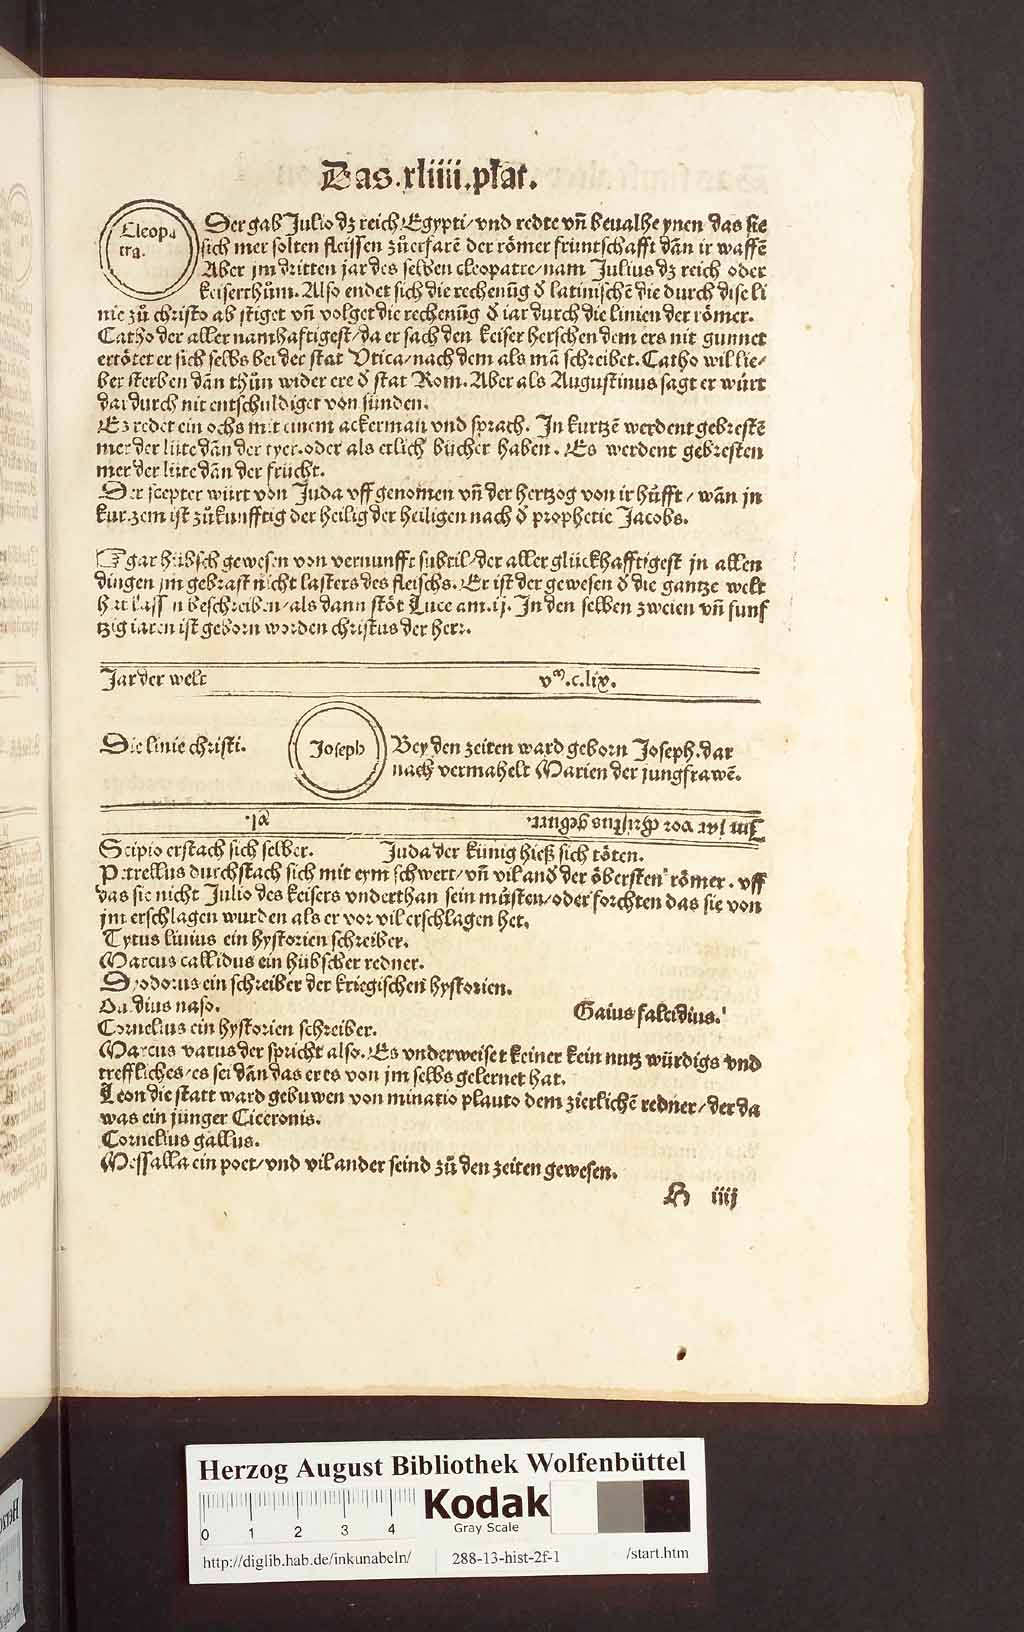 Das.xliiii.plat.
Cleopa
tra.
Der gab Julio dz reich Egypti/vnd redte vn̄ beualhe ynen das sie
sich mer solten fleissen zů erfarē der römer fruntschafft dān ir waffē
Aber jm dritten jar des selben cleopatre/nam Julius dz reich oder
keiserthům. Also endet sich die rechenūg d̕ latinischē die durch dise li
nie zů christo ab stiget vn̄ volget die rechenūg d̕ iar durch die linien der römer.
Catho der aller namhafftigest/da er sach den keiser herschen dem ers nit gunnet
ertötet er sich selbs bei der stat Vtica/nach dem als mā schreibet. Catho wil lie/
ber sterben dān thůn wider ere d̕ stat Rom. Aber als Augustinus sagt er würt
dardurch nit entschuldiget von sunden.
Ez redet ein ochs mit einem ackerman vnd sprach. In kurtzē werdent gebrestē
mer der lüte dān der tyer.oder als etlich bücher haben. Es werdent gebresten
mer der lüte dān der frücht.
Der scepter würt von Juda vff genomen vn̄ der hertzog von ir hüfft/wān jn
kurzem ist zůkunfftig der heilig der heiligen nach d̕ prophetie Jacobs.
gar hübsch gewesen von vernunfft subtil/der aller glückhafftigest jn allen
dingen jm gebrast nicht lasters des fleischs. Er ist der gewesen d̕ die gantze welt
hat lassen beschreiben/als dann stöt Luce am.ij. In den selben zweien vn̄ funf
tzig iaren ist geborn worden christus der herr.
Jar der welt vᵐ.c.lix.
Die linie christi.
Joseph
Bey den zeiten ward geborn Joseph.dar
nach vermahelt Marien der jungfrawē.
Im jar vor christus geburt. xl.
Scipio erstach sich selber. Juda der künig hieß sich töten.
Petreius durchstach sich mit eym schwert/vn̄ vil and̕ der öbersten römer. vff
das sie nicht Julio des keisers vnderthan sein müsten/oder forchten das sie von
jm erschlagen wurden als er vor vil erschlagen het.
Tytus liuius ein hystorien schreiber.
Marcus callidus ein hübscher redner.
Dyodorus ein schreiber der kriegischen hystorien.
Ouidius naso. Gaius falcidius.
Cornelius ein hystorien schreiber.
Marcus varus der spricht also. Es vnderweiset keiner kein nutz würdigs vnd
treffliches/es sei dān das er es von jm selbs gelernet hat.
Leon die statt ward gebuwen von minatio plauto dem zierlichē redner/der da
was ein junger Ciceronis.
Cornelius gallus.
Messalla ein poet/vnd vil ander seind zů den zeiten gewesen.
H iiij
Herzog August Bibliothek Wolfenbüttel
0 1 2 3 4
Kodak
Gray Scale
http://diglib.hab.de/inkunabeln/ 288-13-hist-2f-1 /start.htm